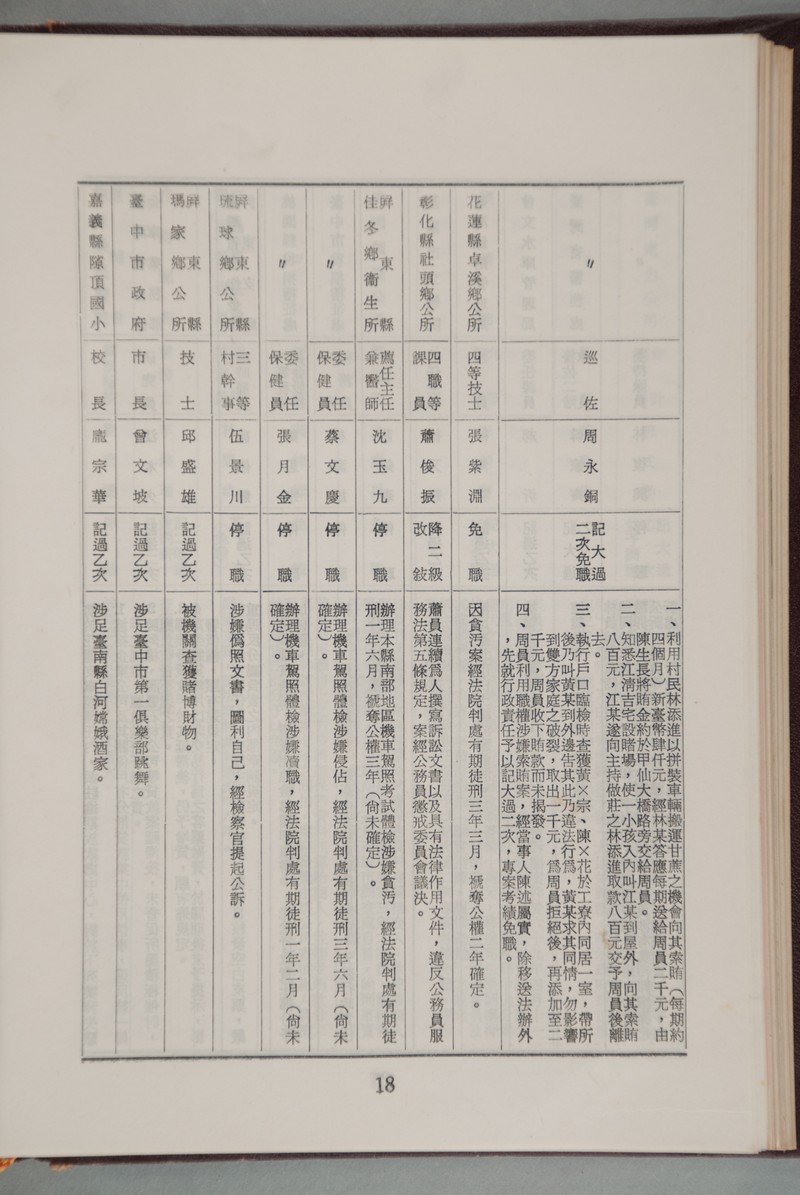 〃
巡佐
周永銅
記大過
二次免職
一、利用村民林添進以拼裝車輛搬運甘蔗之機會向其索賄（每期約
四個月）新臺幣肆仟元，經林某答應每期送給周員二千元，由
陳生長將賄金約於甲仙大橋路旁交給周員。
二、知悉江淸吉宅設賭場，使一小孩入內叫江某到屋外，向其索賄
八百元，江某遂向主持做莊之林添進取款八百元交予周員後離
去。
三、執行戶口臨檢時查獲黃×宗、陳×花於工寮內同居一室，帶所
後乃叫黃某到外邊告其此乃違法行爲，黃某求其同情，勿影響
到雙方家庭之破裂，取出一千元，爲周員拒絕後，再添加至二
千元，周員收下賄款而未揭發。
四、周員利用職權涉嫌索賄案，經當事人陳述屬實，除移送法辦外
，先就行政責任予以記大過二次，專案考績免職。
花蓮縣卓溪鄉公所
四等技士
張紫淵
免職
因貪汚案經法院判處有期徒刑三年三月，褫奪公權二年確定。
彰化縣社頭鄉公所
四職等
課員
蕭俊振
降二級
改敍
蕭員連續爲人撰寫訴訟文書以及具有法律作用文件，違反公務員服
務法第五條規定，案經公務員懲戒委員會議決。
屛東縣
佳冬鄉衞生所
薦任主任
兼醫師
沈玉九
停職
辦理本縣南部地區機車駕照考試體檢涉嫌貪汚，經法院判處有期徒
刑一年六月，褫奪公權三年（尙未確定）。
〃
委任
保健員
蔡文慶
停職
辦理機車駕照體檢涉嫌侵佔，經法院判處有期徒刑三年六月（尙未
確定）。
〃
委任
保健員
張月金
停職
辦理機車駕照體檢涉嫌瀆職，經法院判處有期徒刑一年二月（尙未
確定）。
屛東縣
琉球鄉公所
三等
村幹事
伍景川
停職
涉嫌僞照文書，圖利自己，經檢察官提起公訴。
屛東縣
瑪家鄉公所
技士
邱盛雄
記過乙次
被機關查獲賭博財物。
臺中市政府
市長
曾文坡
記過乙次
涉足臺中市第一俱樂部跳舞。
嘉義縣隙頂國小
校長
龐宗華
記過乙次
涉足臺南縣白河嫦娥酒家。
18